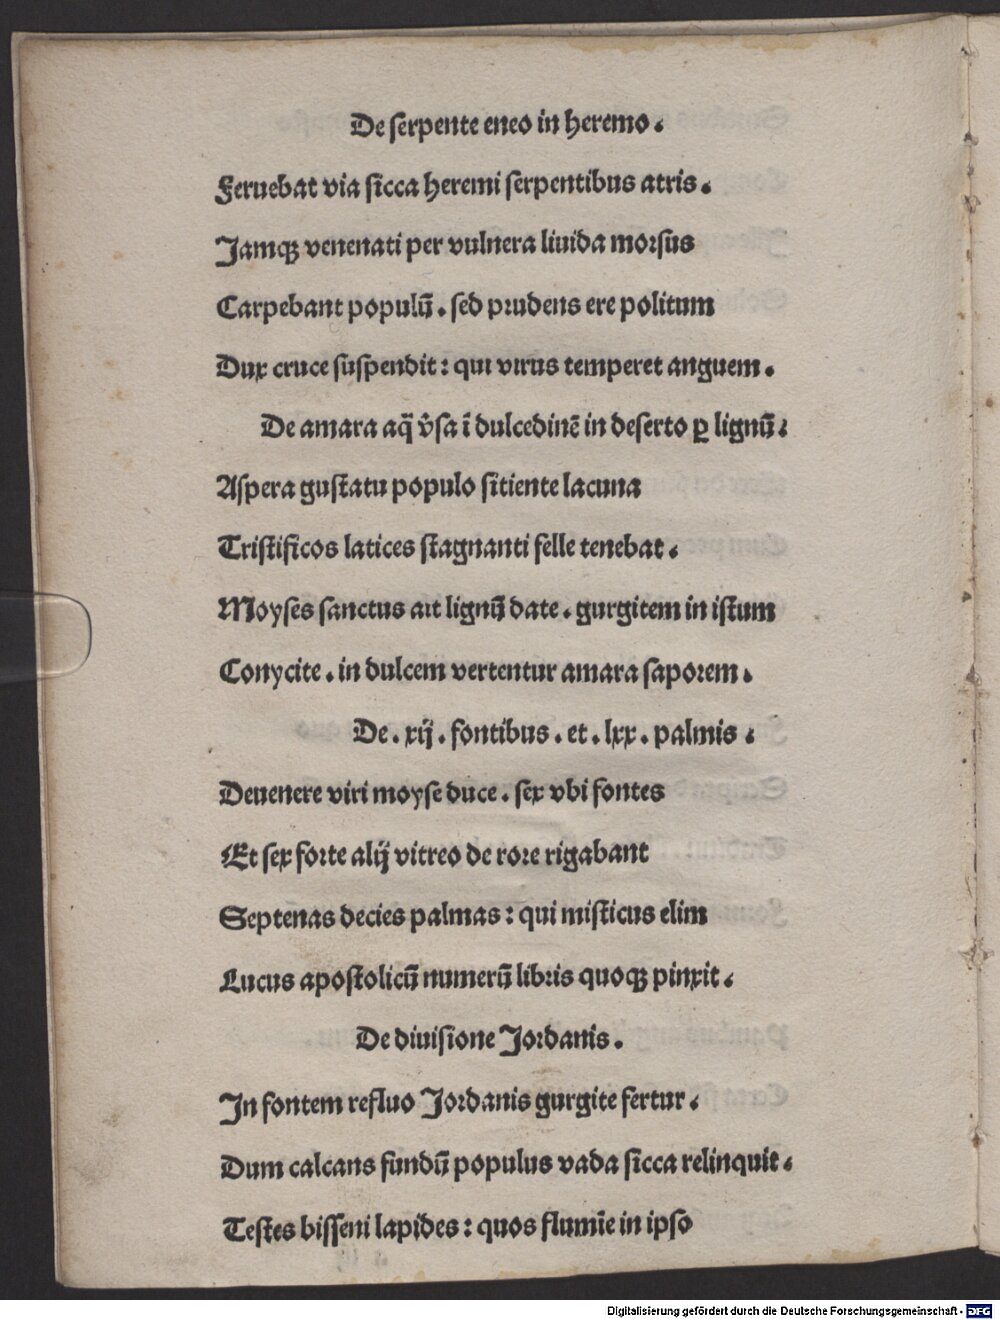 De serpente eneo in heremo.
Feruebat via sicca heremi serpentibus atris.
Jamqꝫ venenati per vulnera liuida morsus
Carpebant populū. sed prudens ere politum
Dux cruce suspendit: qui virus temperet anguem.
De amara aq̄ v̓sa ī dulcedinē in deserto ꝑ lignū.
Aspera gustatu populo sitiente lacuna
Tristificos latices stagnanti felle tenebat.
Moyses sanctus ait lignū date. gurgitem in istum
Conycite. in dulcem vertentur amara saporem.
De. xij. fontibus. et. lxx. palmis.
Deuenere viri moyse duce. sex vbi fontes
Et sex forte alij vitreo de rore rigabant
Septenas decies palmas: qui misticus elim
Lucus apostolicū numerū libris quoqꝫ pinxit.
De diuisione Jordanis.
In fontem refluo Jordanis gurgite fertur.
Dum calcans fundū populus vada sicca relinquit.
Testes bisseni lapides: quos flumīe in ipso
Digitalisierung gefördert durch die Deutsche Forschungsgemeinschaft - DFG